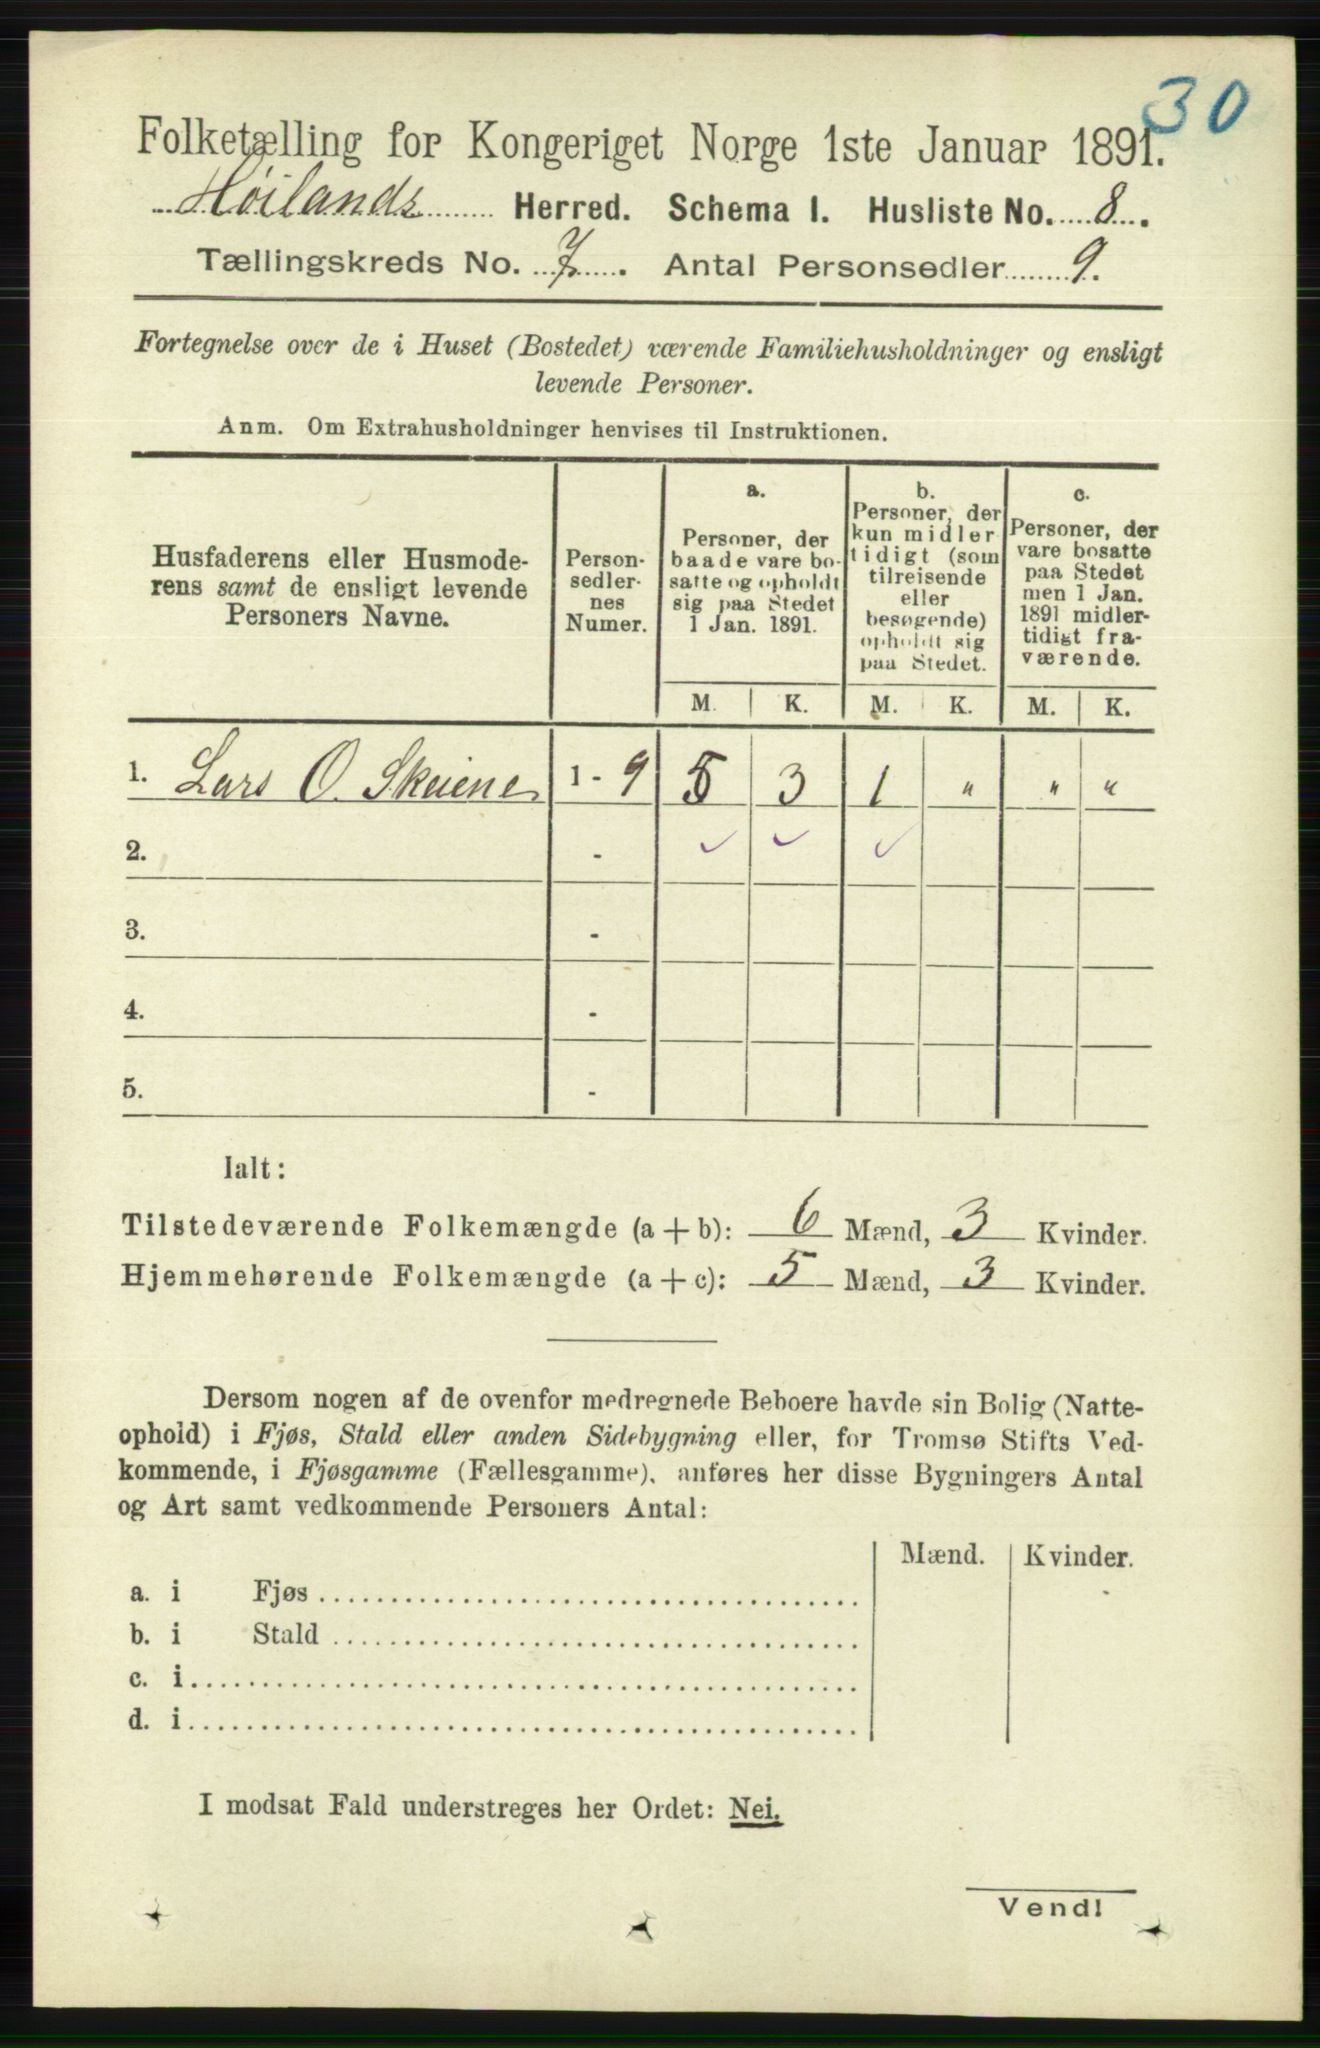 30
Folketælling for Kongeriget Norge 1ste Januar 1891.
Høilands Herred. Schema I. Husliste No. 8.
Tællingskreds No. 7. Antal Personsedler 9.
Fortegnelse over de i Huset (Bostedet) værende Familiehusholdninger og ensligt
levende Personer.
Anm. Om Extrahusholdninger henvises til Instruktionen.
Husfaderens eller Husmode-
rens samt de ensligt levende
Personers Navne.
Person-
sedler-
nes
Numer.
a.
Personer, der
baade vare bo-
satte og opholdt
sig paa Stedet
1 Jan. 1891.
b.
Personer, der
kun midler
tidigt (som
tilreisende
eller
besøgende)
opholdt sig
paa Stedet.
c.
Personer, der
vare bosatte
paa Stedet
men 1 Jan.
1891 midler-
tidigt fra-
værende.
M. K. M. K. M. K.
1. Lars O. Skeiene 1 - 9 5 3 1 " " "
2. - ✓ ✓ ✓
3. -
4. -
5. -
Ialt:
Tilstedeværende Folkemængde (a + b): 6 Mænd, 3 Kvinder.
Hjemmehørende Folkemængde (a + c): 5 Mænd, 3 Kvinder.
Dersom nogen af de ovenfor medregnede Beboere havde sin Bolig (Natte-
ophold) i Fjøs, Stald eller anden Sidebygning eller, for Tromsø Stifts Ved-
kommende, i Fjøsgamme (Fællesgamme), anføres her disse Bygningers Antal
og Art samt vedkommende Personers Antal:
Mænd. Kvinder.
a. i Fjøs
b. i Stald
c. i
d. i
I modsat Fald understreges her Ordet: Nei.
Vend!